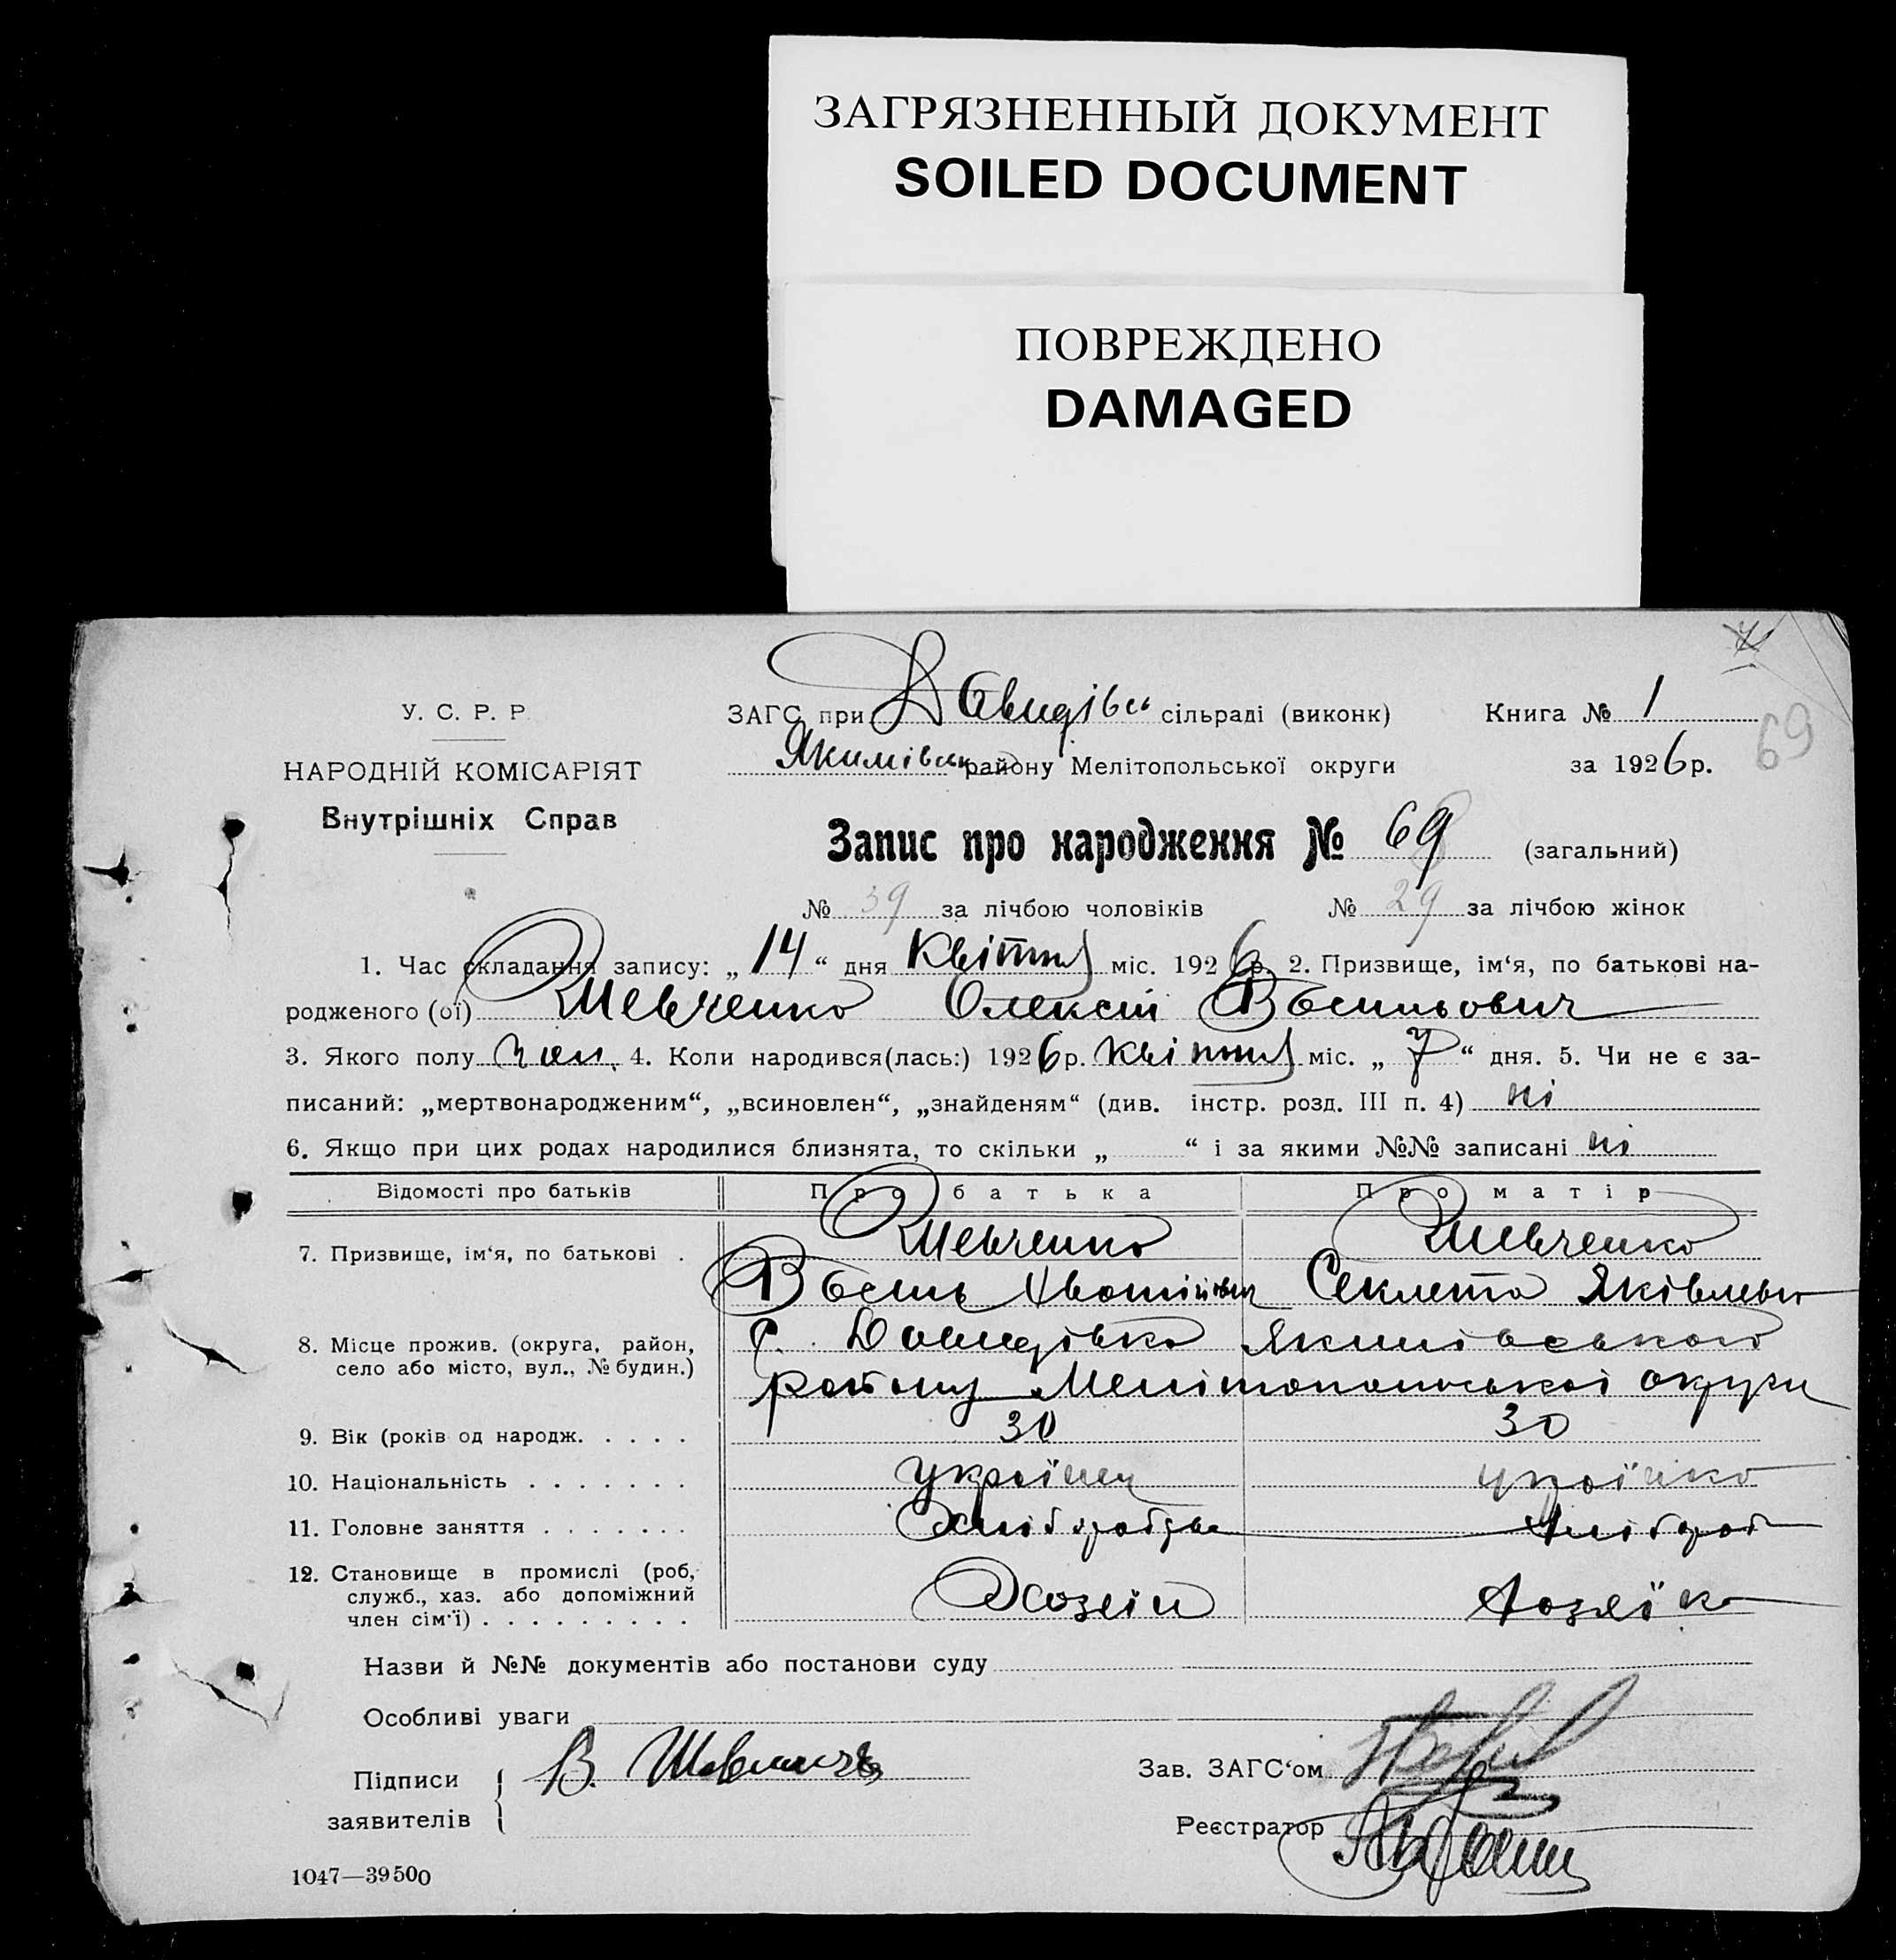 ЗАГРЯЗНЕННЫЙ ДОКУМЕНТ
SOILED DOCUMENT
ПОВРЕЖДЕНО
DAMAGED
У. С. Р. Р.
НАРОДНІЙ КОМІСАРІЯТ
Внутрішніх Справ
ЗАГС при Давидівс сільраді (виконк) Книга № 1
Якимівськ району Мелітопольської округи за 1926 р.
69
Запис про народження № 69 (загальний)
№ 39 за лічбою чоловіків № 29 за лічбою жінок
1. Час складання запису: „14“ дня Квітня міс. 1926 р. 2. Призвище, ім‘я, по батькові на-
родженого (ої) Шевченко Олексій Васильович
3. Якого полу чол. 4. Коли народився(лась:) 1926 р. Квітня міс. „7“ дня. 5. Чи не є за-
писаний: „мертвонародженим“, „всиновлен“, „знайденям“ (див. інстр. розд. III п. 4) ні
6. Якщо при цих родах народилися близнята, то скільки „ “ і за якими №№ записані ні
Відомості про батьків Про батька Про матір
7. Призвище, ім‘я, по батькові . Шевченко Шевченко
Василь Секлета Яківлевн
8. Місце прожив. (округа, район, село або місто, вул., № будин.) с. Давидівка Якимівського
району Мелітопольської округи
9. Вік (років од народж. . . . . 30 30
10. Національність . . . . . . . українец українка
11. Головне заняття . . . . . . . Хлібороб
12. Становище в промислі (роб, служб., хаз. або допоміжний член сім‘ї) . . . . . . . . . Хозяїн Хозяїка
Назви й №№ документів або постанови суду
Особливі уваги
Підписи заявителів В. Шевченко
Зав. ЗАГС‘ом
Реєстратор
1047—39500